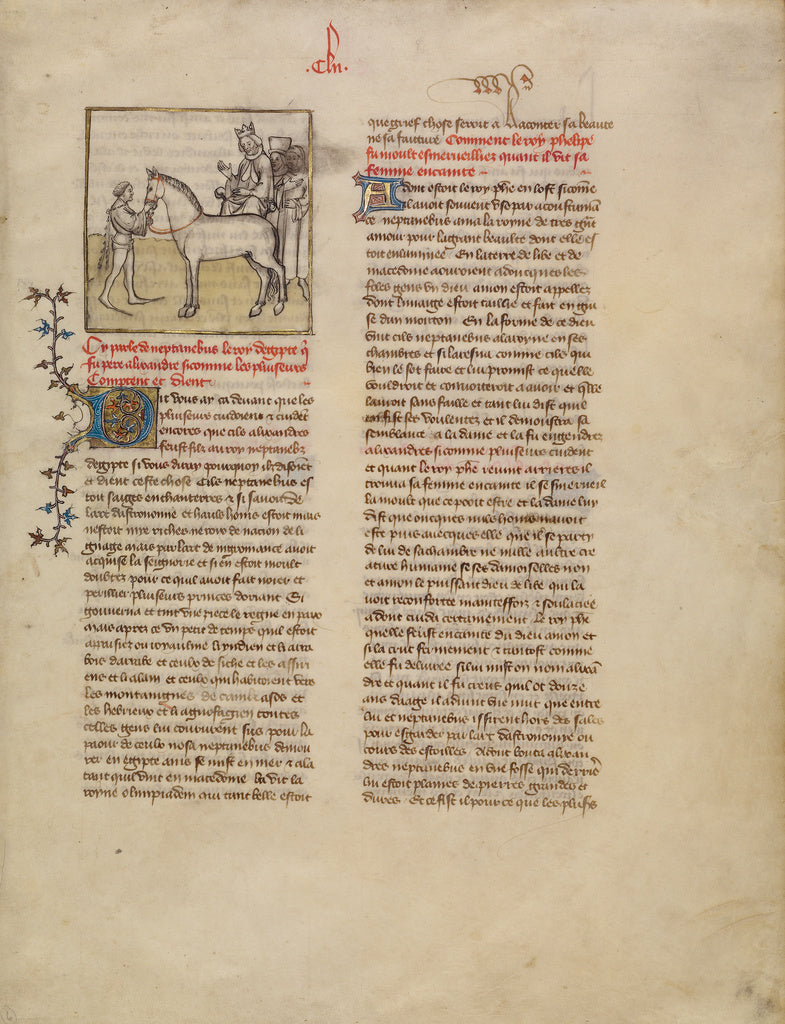 .Clii.
Cy parle de neptanebus le roy degipte q̃
fu pere alixandre si comme les pluiseurs
Comptent et dient
Dit vous ay ca devant que les
pluiseurs cuidoient ⁊ cuidẽt
encores que cils alixandres
feust filz au roy neptanebz
degipte si vous diray pourquoy ilz disoiẽt
et dient ceste chose Cils neptanebus es
toit saiges enchanterres ⁊ si savoit de
lart dastronomie et hauls homs estoit mais
nestoit mye riches ne rois de nacion de li
gnage mais par lart de nigromance avoit
acquise la seignorie et si en estoit moult
doubtez pour ce quil avoit fait noier et
perillier pluiseurs princes dorient Si
gouverna et tint une piece le regne en paix
mais apres ce un petit de temps quil estoit
appaisiez ou royaulme li yndien et li arra
bois darrabe et ceulx de siche et les assiri
ens et li alain et ceulx qui habitoient vers
les montaingnes de caucasas et
les hebrieux et li agnofagien contres
celles gens lui coururent sus pour la
paour de ceulx nosa neptanebus demou
rer en egipte ains se mist en mer ⁊ ala
tant quil vint en macedoine la vit la
royne olimpiadem qui tant belle estoit
que grief chose seroit a Raconter sa beaute
ne sa faiture Comment le roy phelippe
fu moult esmerveilliez quant il vit sa
femme encainte
Adont estoit le roy phẽ en lost si cõme
il avoit souvent use par acoustumãn
ce neptanebus ama la royne de tres grãt
amour pour la grant beaulte dont elle es
toit enluminee En la terre de libe et de
macedoine aouroient adoncques les
foles gens un dieu amon estoit appellez
dont limaige estoit taillie et fait en gui
se dun mouton En la forme de ce dieu
vint cils neptanebus a la royne en ses
chambres et si laresna comme cils qui
bien le sot faire et lui promist ce quelle
vouldroit et convoiteroit a avoir et quelle
lauroit sans faille et tant lui dist que
fist ses voulentez et il demoustra sa
semblance a la dame et la fu engendrez
alixandres si comme pluiseurs cuident
et quant le roy phẽ revint arrieres il
trouva sa femme encainte il se sinerveil
la moult que ce pooit estre et la dame luy
dist que oncques nuls homs navoit
este puis avecques elle que il se party
de lui de sa chambre ne nulle aultre cre
ature humaine se ses damoiselles non
et amon le puissant dieu de libe qui la
voit reconfortee maintesfois ⁊ soulaciee
adont cuida certainement le roy phẽ
quelle feust encainte du dieu amon et
si la crut fermement ⁊ tantost comme
elle fu delivree si lui mist on nom alixã
dre et quant il fu creus quil ot douze
ans daage il advint une nuit que entre
lui et neptanebus issirent hors des sales
pour esgarder par lart dastronomie ou
cours des estoilles Adont bouta alixan
dres neptanebus en une fosse qui derriẽ
lui estoit plaines de pierres grandes et
dures Et ce fist il pour ce que les pluiss